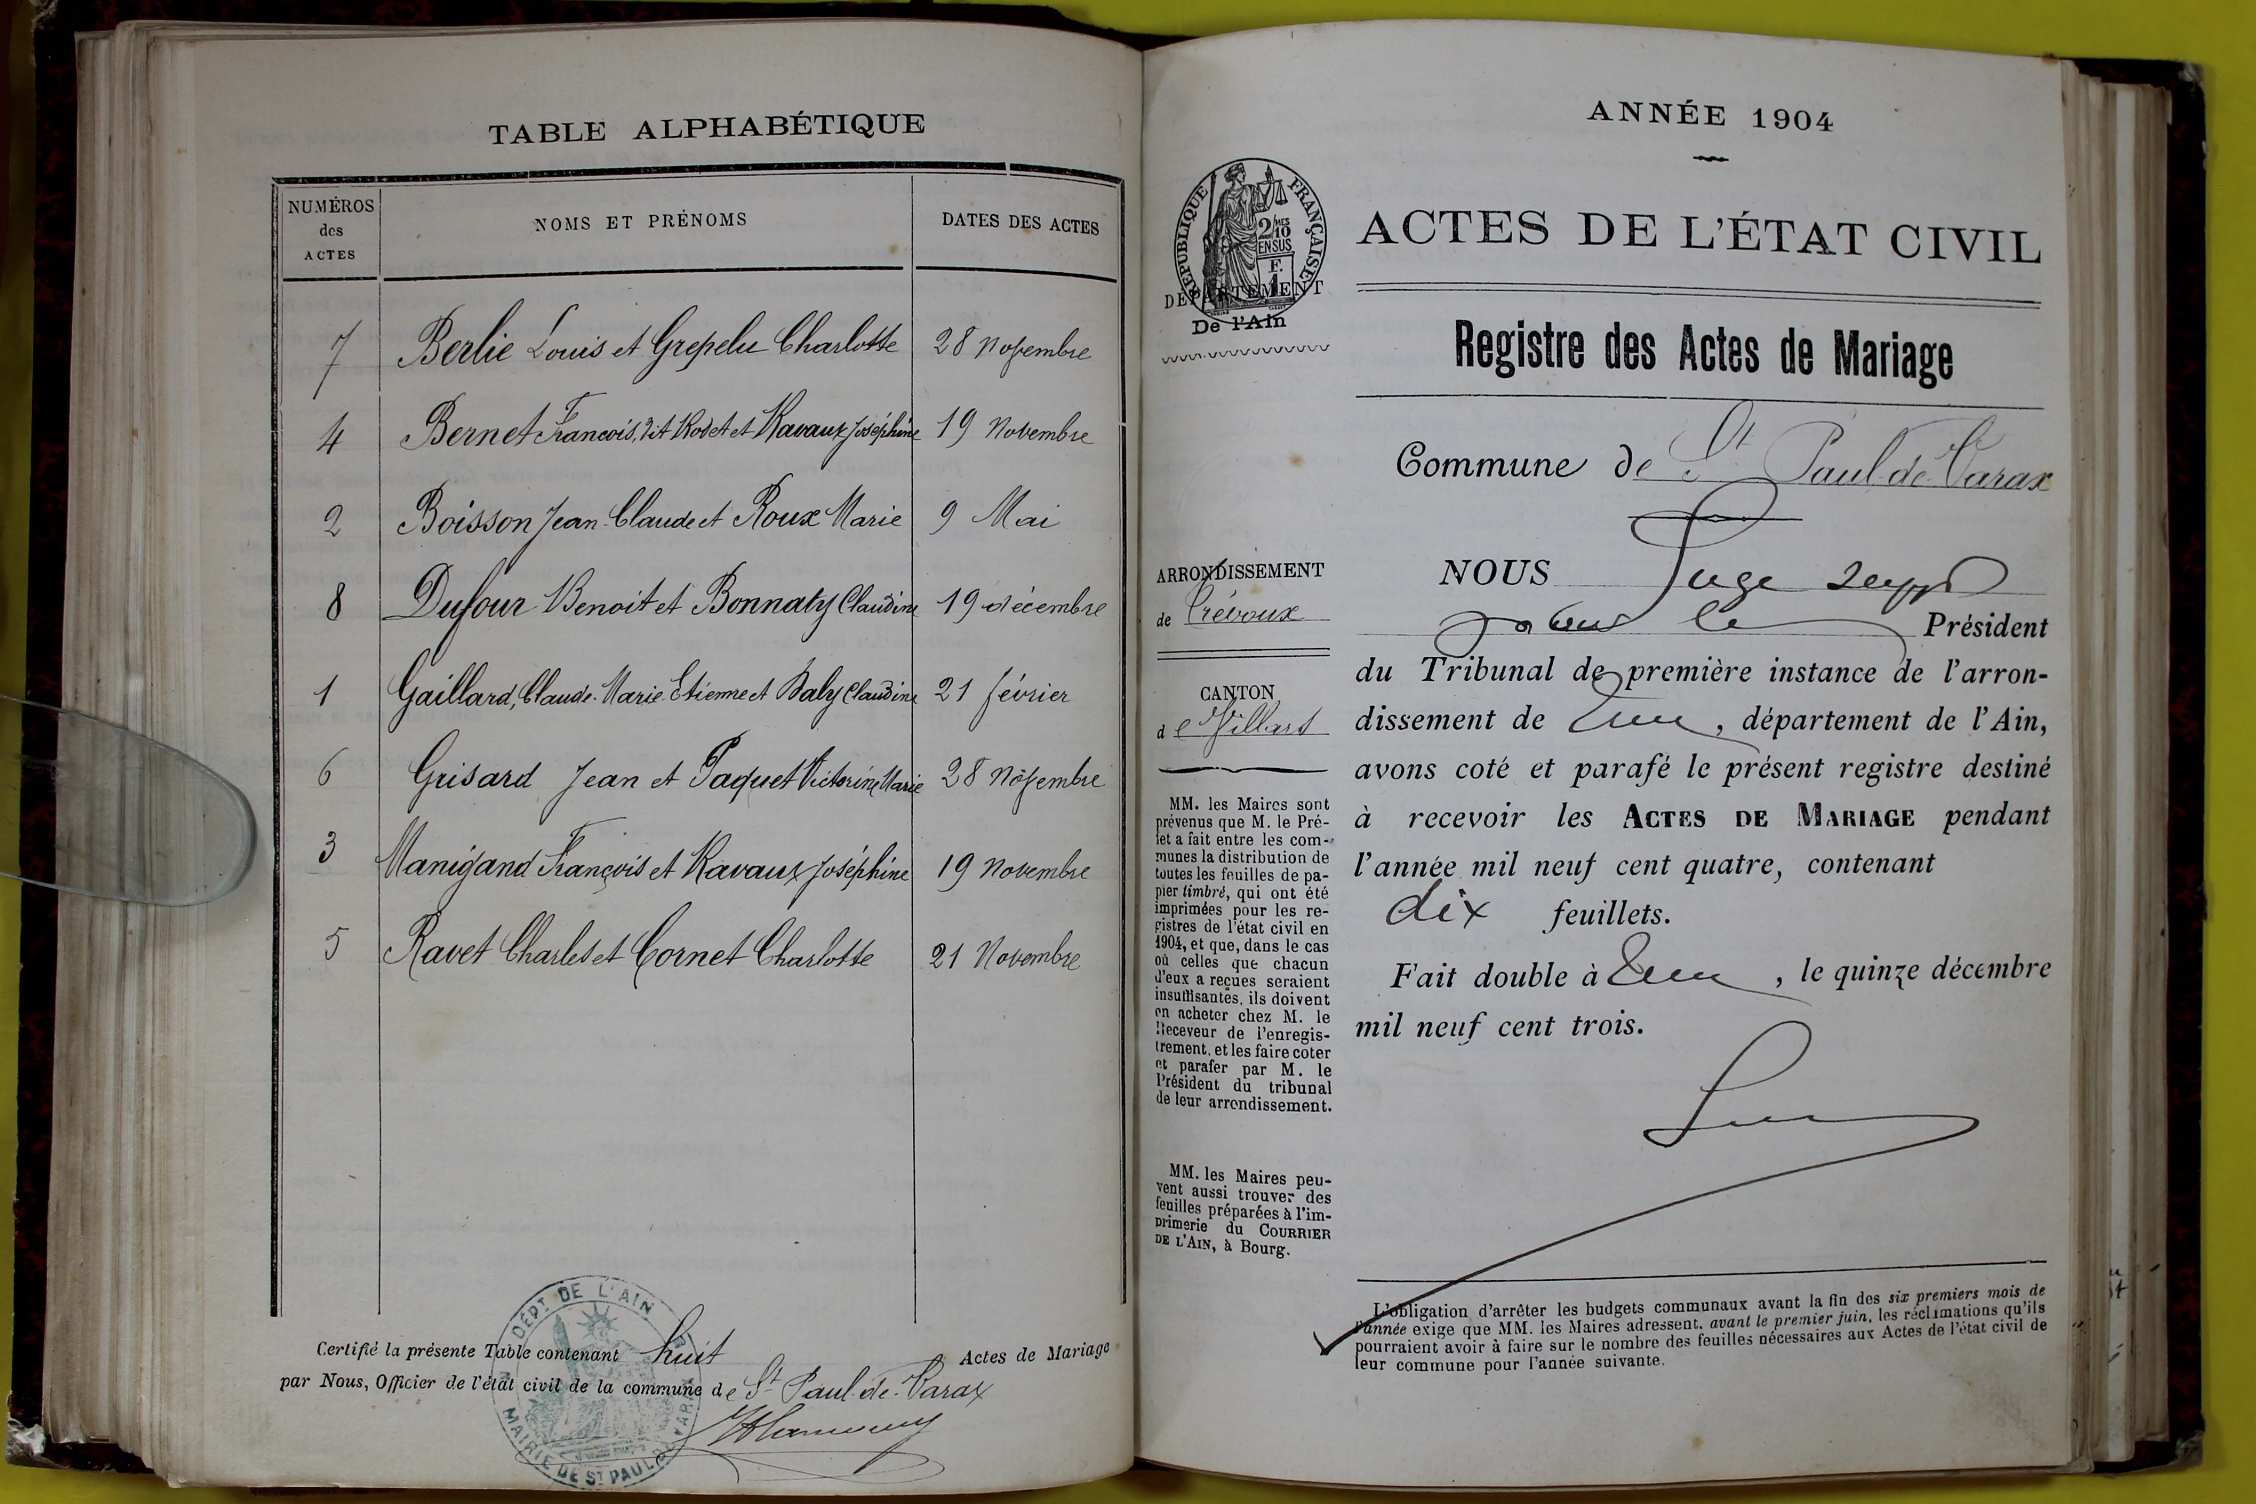 TABLE ALPHABÉTIQUE
NUMÉROS des ACTES
NOMS ET PRÉNOMS
DATES DES ACTES
7 Berlie Louis et Grepelu Charlotte 28 Novembre
4 Bernet François, dit Rodet et Ravaux Joséphine 19 Novembre
2 Boisson Jean-Claude et Roux Marie 9 Mai
8 Dufour Benoit et Bonnaty Claudine 19 décembre
1 Gaillard, Claude-Marie-Etienne et Baly Claudine 21 février
6 Grisard Jean et Paquet Victorine Marie 28 Novembre
3 Manigand François et Ravaux Joséphine 19 Novembre
5 Ravet Charles et Cornet Charlotte 21 Novembre
Certifié la présente Table contenant huit Actes de Mariage
par Nous, Officier de l'état civil de la commune de St Paul-de-Varax
DÉPT DE L'AIN
MAIRIE DE ST PAUL
ANNÉE 1904
RÉPUBLIQUE FRANÇAISE
2/10MES
EN SUS
F.
1
DÉPARTEMENT
De l'Ain
ACTES DE L'ÉTAT CIVIL
Registre des Actes de Mariage
Commune de St Paul-de-Varax
ARRONDISSEMENT
de Trévoux
CANTON
de Villars
MM. les Maires sont
prévenus que M. le Pré-
fet a fait entre les com-
munes la distribution de
toutes les feuilles de pa-
pier timbré, qui ont été
imprimées pour les re-
gistres de l'état civil en
1904, et que, dans le cas
où celles que chacun
d'eux a reçues seraient
insuffisantes, ils doivent
en acheter chez M. le
Receveur de l'enregis-
trement, et les faire coter
et parafer par M. le
Président du tribunal
de leur arrondissement.
MM. les Maires peu-
vent aussi trouver des
feuilles préparées à l'im-
primerie du COURRIER
DE L'AIN, à Bourg.
NOUS Juge
le Président
du Tribunal de première instance de l'arron-
dissement de , département de l'Ain,
avons coté et parafé le présent registre destiné
à recevoir les ACTES DE MARIAGE pendant
l'année mil neuf cent quatre, contenant
dix feuillets.
Fait double à , le quinze décembre
mil neuf cent trois.
L'obligation d'arrêter les budgets communaux avant la fin des six premiers mois de
l'année exige que MM. les Maires adressent, avant le premier juin, les réclamations qu'ils
pourraient avoir à faire sur le nombre des feuilles nécessaires aux Actes de l'état civil de
leur commune pour l'année suivante.